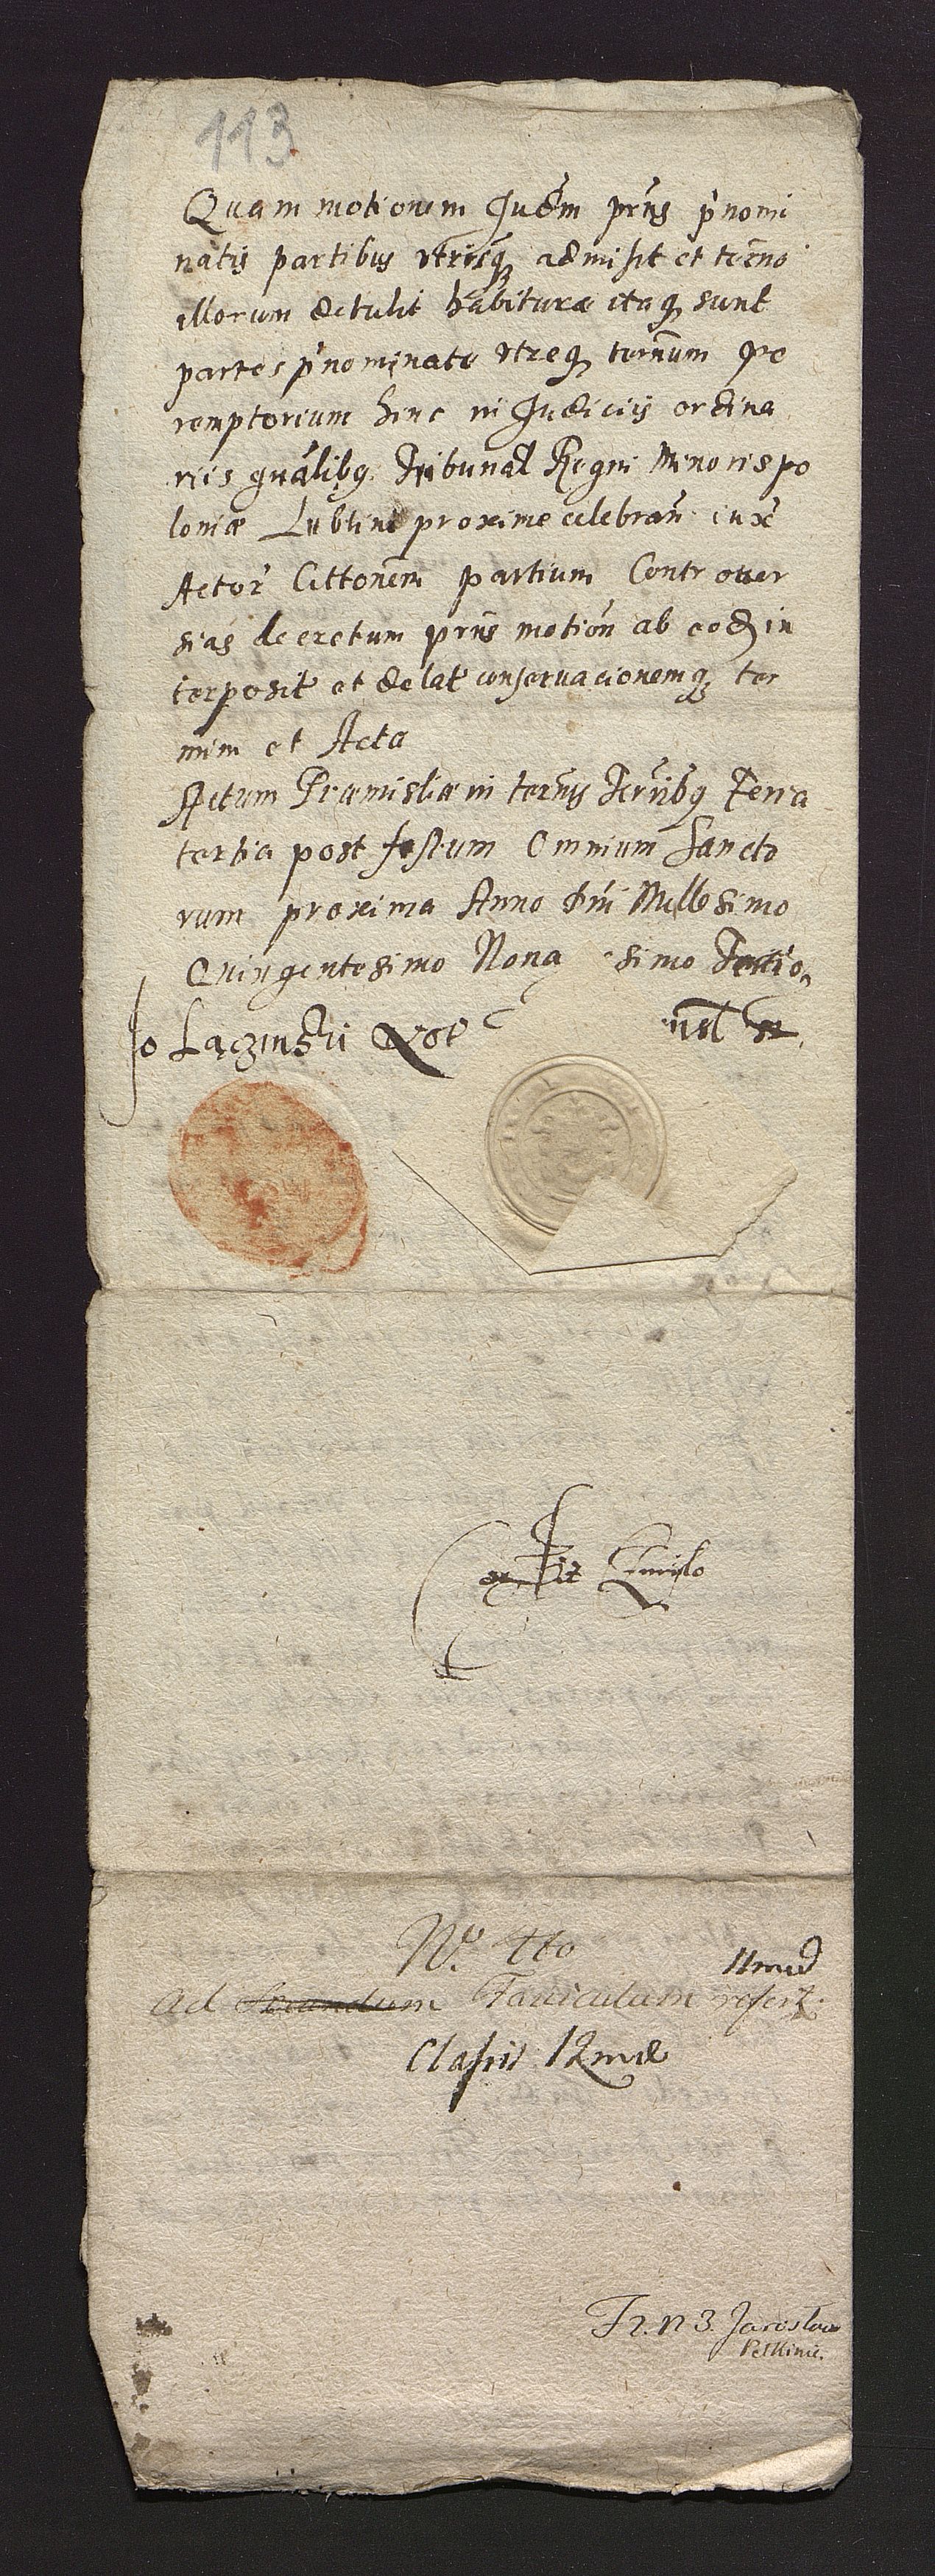 113
Quam motionem Judm prns pnomi
natis partibus vtrisq admisit et termo
illorum detulit habituræ itaq sunt
partes pnominate vtreq termum pe
remptorium hinc in Judiciis ordina
riis gnalibq Tribunal Regni Minoris po
loniæ Lublini proxime celebran iux
Actor Cittonem partium Controuer
sias decretum prns motion ab eod in
terposit et delat conseruacionemq ter
mini et Acta
Actum Præmisliæ in termis Terribq Feria
tertia post festum Omnium Sancto
rum proxima Anno dni Millesimo
Quingentesimo Nona simo Tertio
Jo Łączinski Not
No. 4to
ad Secundum Fasciculum 11mud refert.
Classis 12mæ
Fr. n 3. Jarosław
Pełkinie.